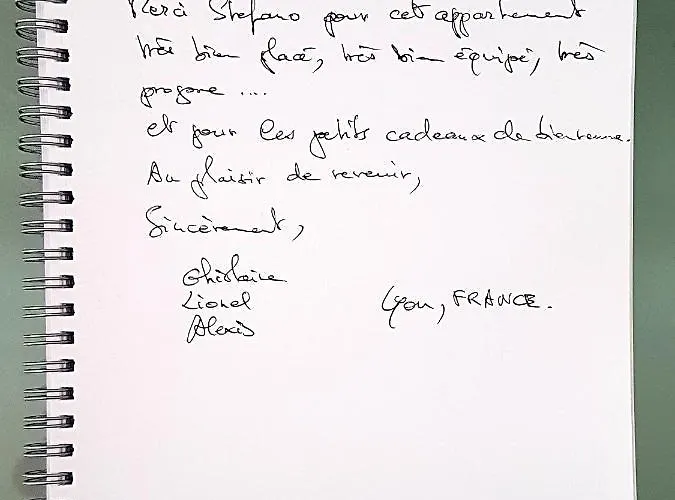 Merci Stefano pour cet appartement
très bien placé, très bien équipé, très
propre ....
et pour les petits cadeaux de bienvenue.
Au plaisir de revenir,
Sincèrement,
Ghislaine
Lionel
Alexis
Lyon, FRANCE.